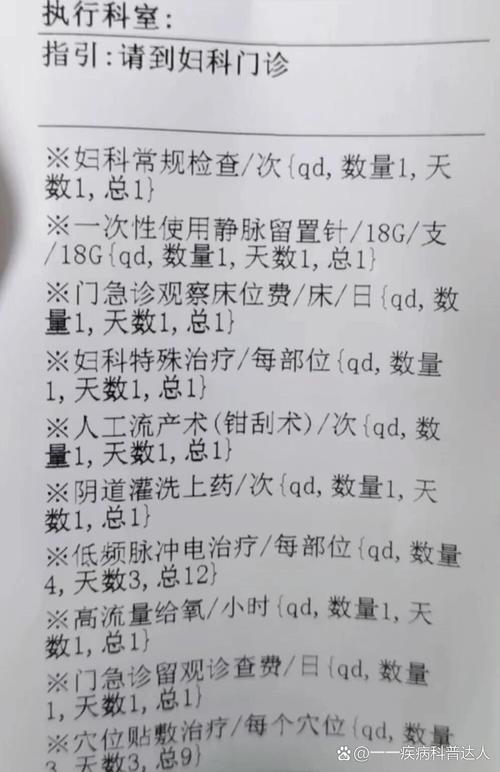 执行科室:
指引:请到妇科门诊
※妇科常规检查/次{qd,数量1,天
数1,总1}
※一次性使用静脉留置针/18G/支
/18G{qd,数量1,天数1,总1}
※门急诊观察床位费/床/日{qd,数
量1,天数1,总1}
※妇科特殊治疗/每部位{qd,数量
1,天数1,总1}
※人工流产术(钳刮术)/次{qd,数
量1,天数1,总1}
※阴道灌洗上药/次{qd,数量1,天
数1,总1}
※低频脉冲电治疗/每部位{qd,数量
4,天数3,总12}
※高流量给氧/小时{qd,数量1,天
数1,总1}
※门急诊留观诊查费/日{qd,数量
1,天数1,总1}
※穴位贴敷治疗/每个穴位{qd,数量
3,天数3,总9}
@一一疾病科普达人